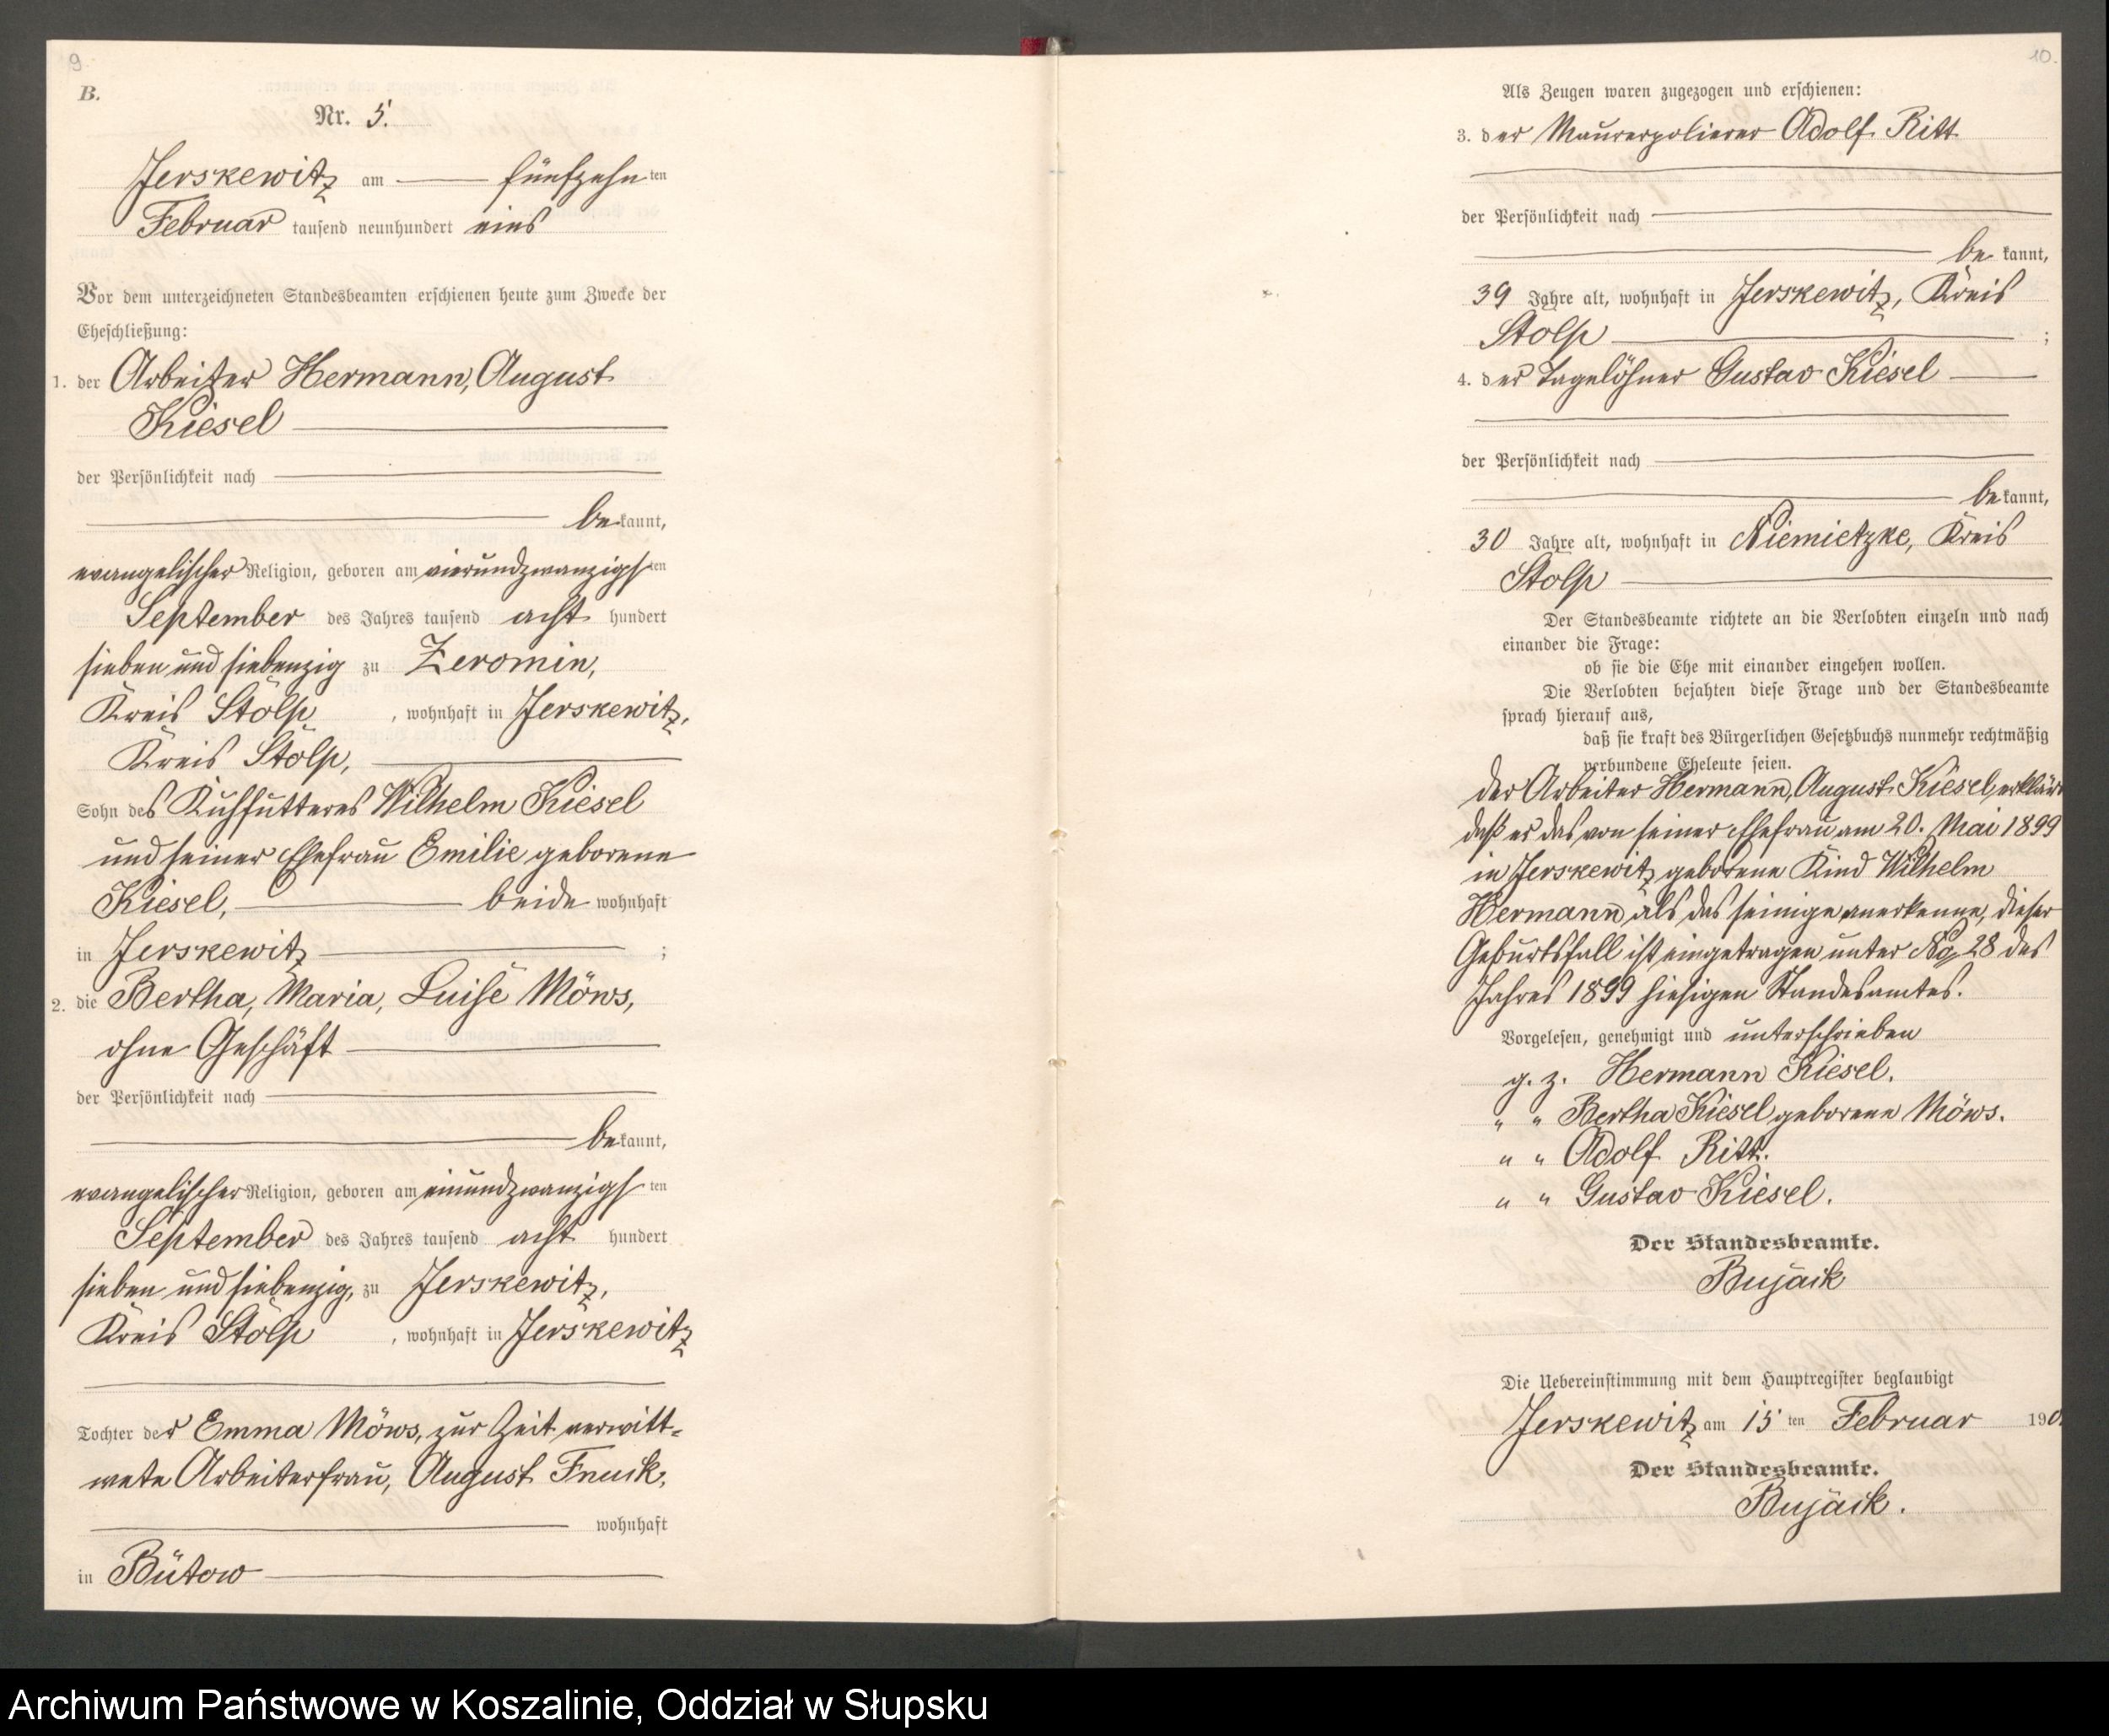 9
B.
Nr. 5.
Jerskewitz am fünfzehnten
Februar tausend neunhundert eins
Vor dem unterzeichneten Standesbeamten erschienen heute zum Zwecke der
Eheschließung:
1. der Arbeiter Hermann, August
Kiesel
der Persönlichkeit nach
bekannt,
evangelischer Religion, geboren am vierundzwanzigsten
September des Jahres tausend acht hundert
sieben und siebenzig zu Zeromin,
Kreis Stolp, wohnhaft in Jerskewitz,
Kreis Stolp,
Sohn des Kuhfutteres Wilhelm Kiesel
und seiner Ehefrau Emilie geborene
Kiesel, beide wohnhaft
in Jerskewitz ;
2. die Bertha, Maria, Luise Möws,
ohne Geschäft
der Persönlichkeit nach
bekannt,
evangelischer Religion, geboren am einundzwanzigsten
September des Jahres tausend acht hundert
sieben und siebenzig, zu Jerskewitz,
Kreis Stolp, wohnhaft in Jerskewitz
Tochter der Emma Möws, zur Zeit verwitt-
wete Arbeiterfrau, August
wohnhaft
in Bütow
10.
Als Zeugen waren zugezogen und erschienen:
3. der Maurerpolierer Adolf Ritt
der Persönlichkeit nach
be kannt,
39 Jahre alt, wohnhaft in Jerskewitz, Kreis
Stolp ;
4. der Tagelöhner Gustav Kiesel
der Persönlichkeit nach
bekannt,
30 Jahre alt, wohnhaft in Niemietzke, Kreis
Stolp
Der Standesbeamte richtete an die Verlobten einzeln und nach
einander die Frage:
ob sie die Ehe mit einander eingehen wollen.
Die Verlobten bejahten diese Frage und der Standesbeamte
sprach hierauf aus,
daß sie kraft des Bürgerlichen Gesetzbuchs nunmehr rechtmäßig
verbundene Eheleute seien.
Der Arbeiter Hermann, August Kiesel, erklärt
daß er das von seiner Ehefrau am 20. Mai 1899
in Jerskewitz geborene Kind Wilhelm
Hermann als das seinige anerkenne, dieser
Geburtsfall ist eingetragen unter No 28 des
Jahres 1899 hiesigen Standesamtes.
Vorgelesen, genehmigt und unterschrieben
g. z. Hermann Kiesel.
" " Bertha Kiesel geborene Möws.
" " Adolf Ritt.
" " Gustav Kiesel.
Der Standesbeamte.
Bujack
Die Uebereinstimmung mit dem Hauptregister beglaubigt
Jerskewitz am 15 ten Februar 190
Der Standesbeamte.
Bujack.
Archiwum Państwowe w Koszalinie, Oddział w Słupsku